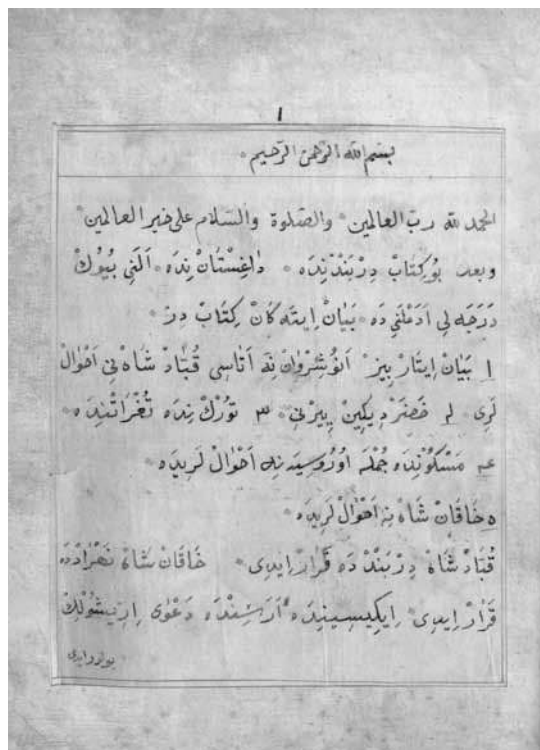 ١
بسم الله الرحمن الرحيم
الحمد لله ربّ العالمين والصّلوة والسّلام على خير العالمين
وبعد بُو كِتَابْ دِرْبَنْدْنِدَه دَاغِسْتَانْ نِدَه اَلَنِي بُيُوكْ
دَرَجَه لِى اَدَمْلَنِي دَه بَيَانْ اِيتَه كَانْ كِتَابْ دِرْ
١ بَيَانْ اِيتَارْ بِيزْ اَنُوْشِرْوَانْ نِه اَتَاسِى قُبَادْ شَاهْ نِى اَحْوَالْ
لَرِى ٢ خَضَرْ دِيكِينْ بِيرْنِي ٣ تُورْكْ نِنْدَه تُغْرَاتْنِدَه
٤ مَسْكَوْنِدَه جُمْلَه اُورُوسِيَه نِه اَحْوَالْ لَرِيدَه
٥ خَاقَانْ شَاهْ نِه اَحْوَالْ لَرِيدَه
قُبَادْ شَاهْ دِرْبَنْدْ دَه قَرَارْ اِيدِى خَاقَانْ شَاهْ
قَرَارْ اِيدِى اِيكِيسِينِدَه اَرَسِنْدَه دَعْوَى
بولور ايدى